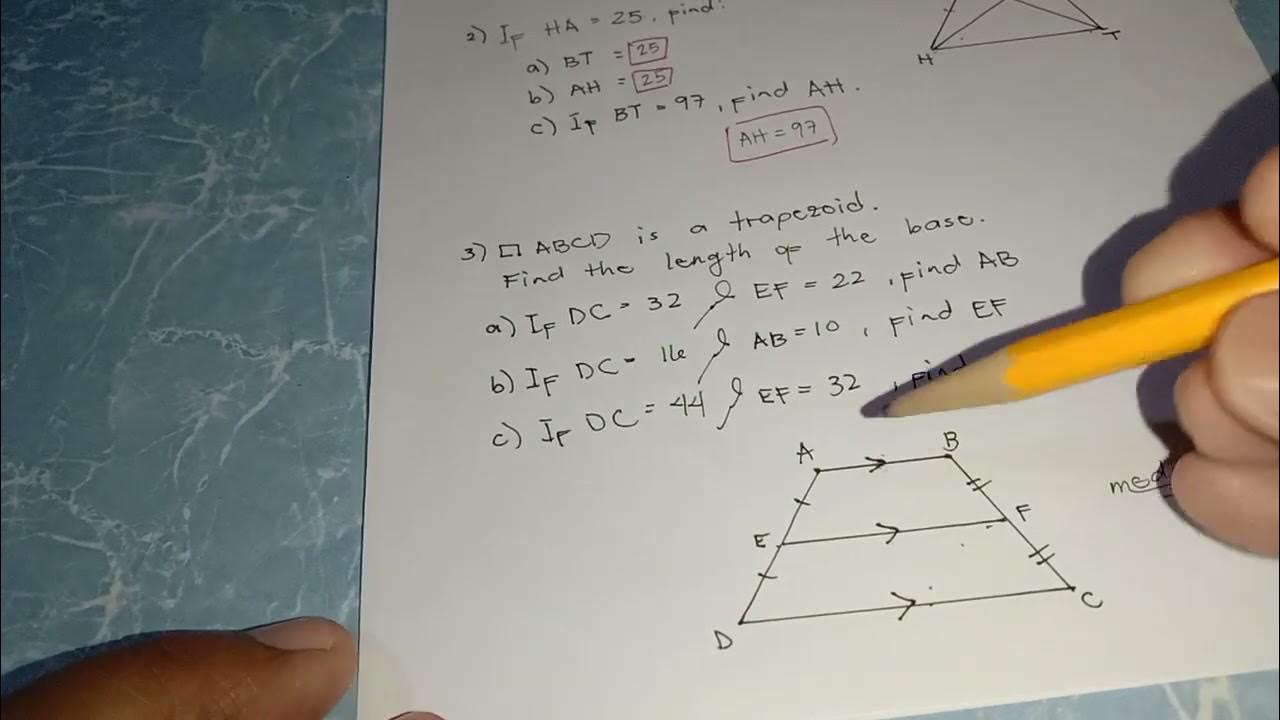 2) IF HA = 25, find:
a) BT = 25
b) AH = 25
c) IF BT = 97, find AH.
AH = 97
H
T
3) □ ABCD is a trapezoid.
Find the length of the base.
a) IF DC = 32 & EF = 22, find AB
b) IF DC = 16 & AB = 10, find EF
c) IF DC = 44 & EF = 32, find
A
B
E
F
D
C